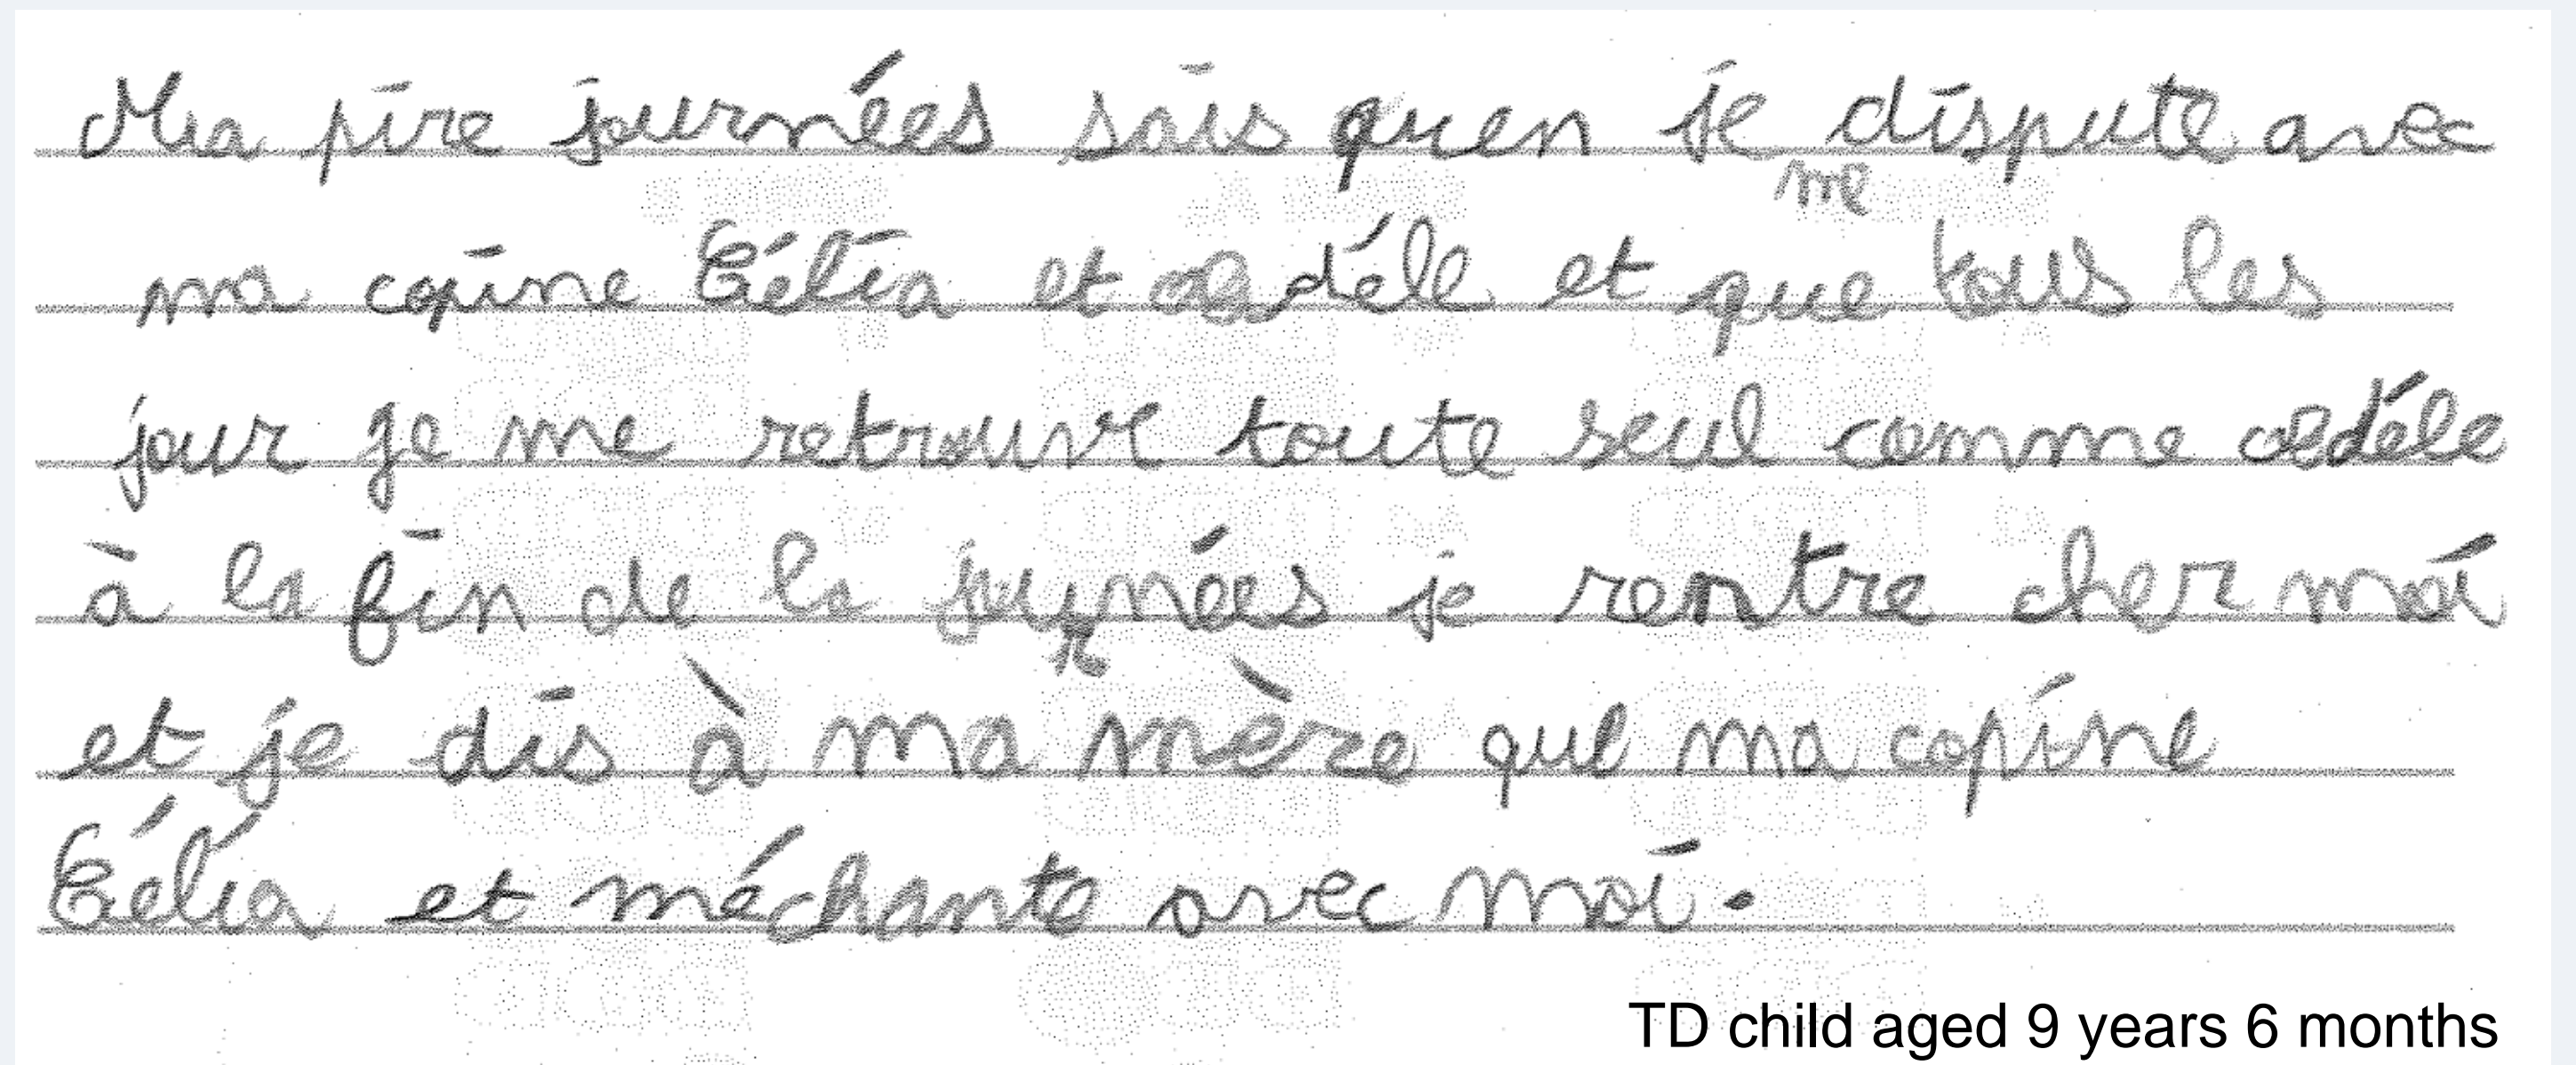 Ma pire journées sais quen je dispute avec
me
ma copine Célia et adéle et que tous les
jour je me retrouve toute seul comme adéle
à la fin de la journées je rentre cher moi
et je dis à ma mère que ma copine
Célia et méchante avec moi.
TD child aged 9 years 6 months